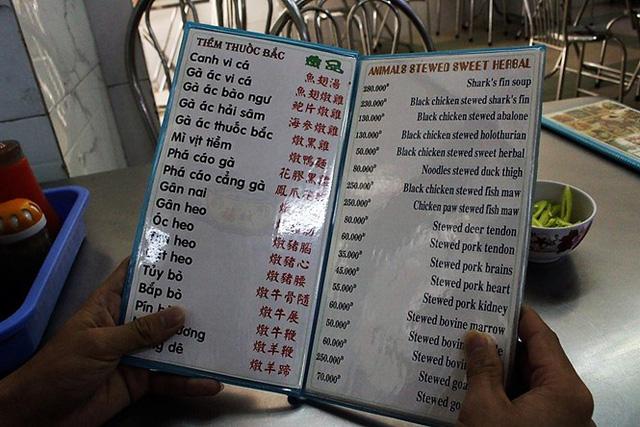 TIỀM THUỐC BẮC
Canh vi cá
Gà ác vi cá
Gà ác bào ngư
Gà ác hải sâm
Gà ác thuốc bắc
Mì vịt tiềm
Phá cáo gà
Phá cáo cẳng gà
Gân nai
Gân heo
Óc heo
heo
heo
Tủy bò
Bắp bò
dê
魚翅湯
魚翅燉雞
鮑片燉雞
海參燉雞
燉黑雞
燉鴨麵
花膠黑雞
鳳爪
燉豬腦
燉豬心
燉豬腰
燉牛骨隨
燉牛展
燉牛鞭
燉羊鞭
燉羊蹄
ANIMALS STEWED SWEET HERBAL
280.000đ Shark's fin soup
230.000đ Black chicken stewed shark's fin
130.000đ Black chicken stewed abalone
130.000đ Black chicken stewed holothurian
50.000đ Black chicken stewed sweet herbal
80.000đ Noodles stewed duck thigh
250.000đ Black chicken stewed fish maw
250.000đ Chicken paw stewed fish maw
80.000đ Stewed deer tendon
60.000đ Stewed pork tendon
35.000đ Stewed pork brains
45.000đ Stewed pork heart
55.000đ Stewed pork kidney
60.000đ Stewed bovine marrow
50.000đ Stewed bovine
60.000đ Stewed
250.000đ Stewed
70.000đ Stewed